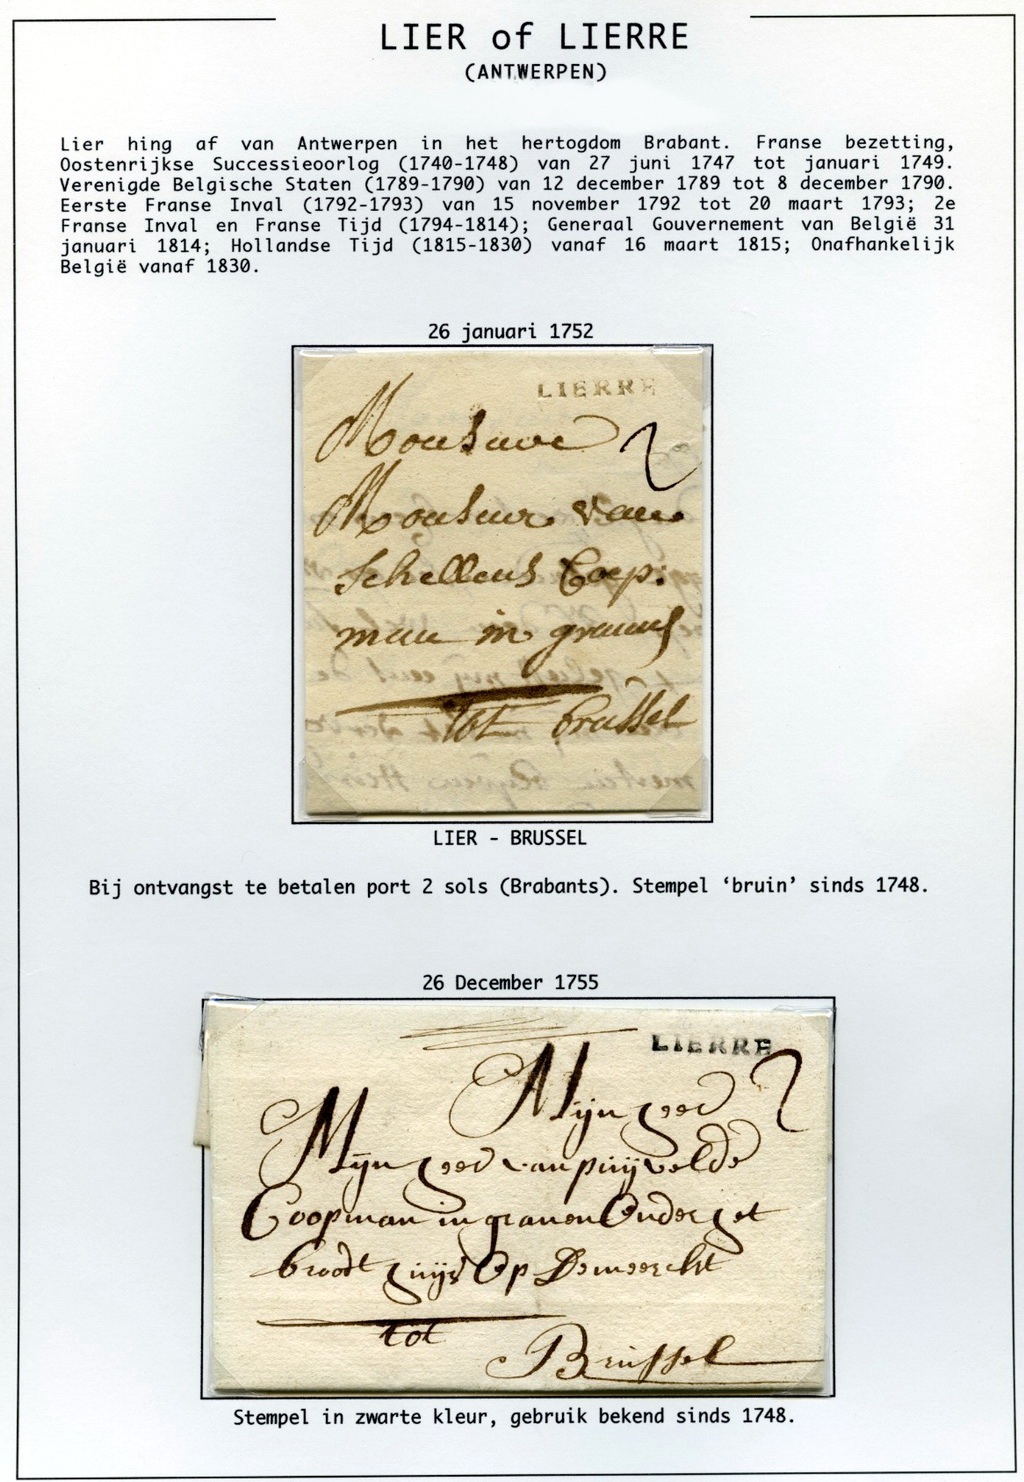 LIER of LIERRE
(ANTWERPEN)
Lier hing af van Antwerpen in het hertogdom Brabant. Franse bezetting,
Oostenrijkse Successieoorlog (1740-1748) van 27 juni 1747 tot januari 1749.
Verenigde Belgische Staten (1789-1790) van 12 december 1789 tot 8 december 1790.
Eerste Franse Inval (1792-1793) van 15 november 1792 tot 20 maart 1793; 2e
Franse Inval en Franse Tijd (1794-1814); Generaal Gouvernement van België 31
januari 1814; Hollandse Tijd (1815-1830) vanaf 16 maart 1815; Onafhankelijk
België vanaf 1830.
26 januari 1752
LIERRE
2
Monsieur van
Schellens Coop:
man in
tot brussel
LIER - BRUSSEL
Bij ontvangst te betalen port 2 sols (Brabants). Stempel ‘bruin’ sinds 1748.
26 December 1755
LIERRE
Mijn heer 2
Mijn heer van puijvelde
Coopman in granen Onder het
broodt huijs Op De merckt
tot
Brussel
Stempel in zwarte kleur, gebruik bekend sinds 1748.